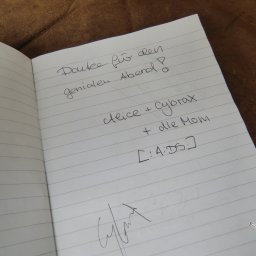 Danke für den
genialen Abend!
Alice + Cybrax
+ die Mom
[:A:DS]